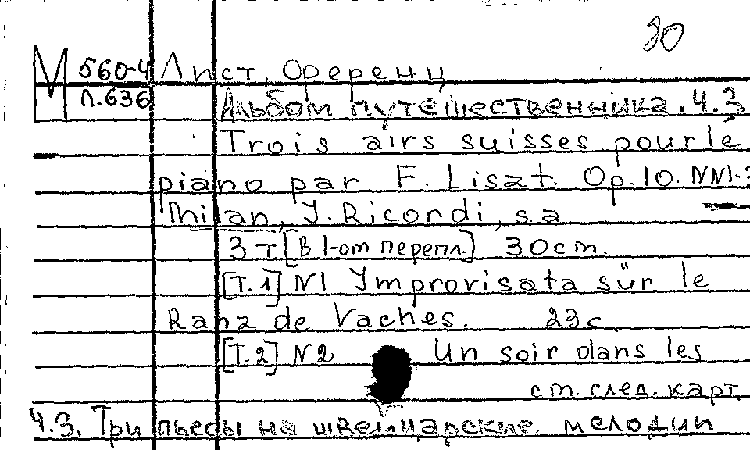 30
М 560-4 Лист, Ференц
Л.636 Альбом путешественника. Ч.3
Trois airs suisses pour le
piano par F. Liszt. Op.10. NN1-3
Milan, J. Ricordi, s.a
3 т [в 1-ом перепл.] 30cm.
[Т.1] N1 Improvisata sur le
Ranz de Vaches. 23с
[Т.2] N2 Un soir dans les
см. след. карт.
Ч.3. Три пьесы на швейцарские мелодии